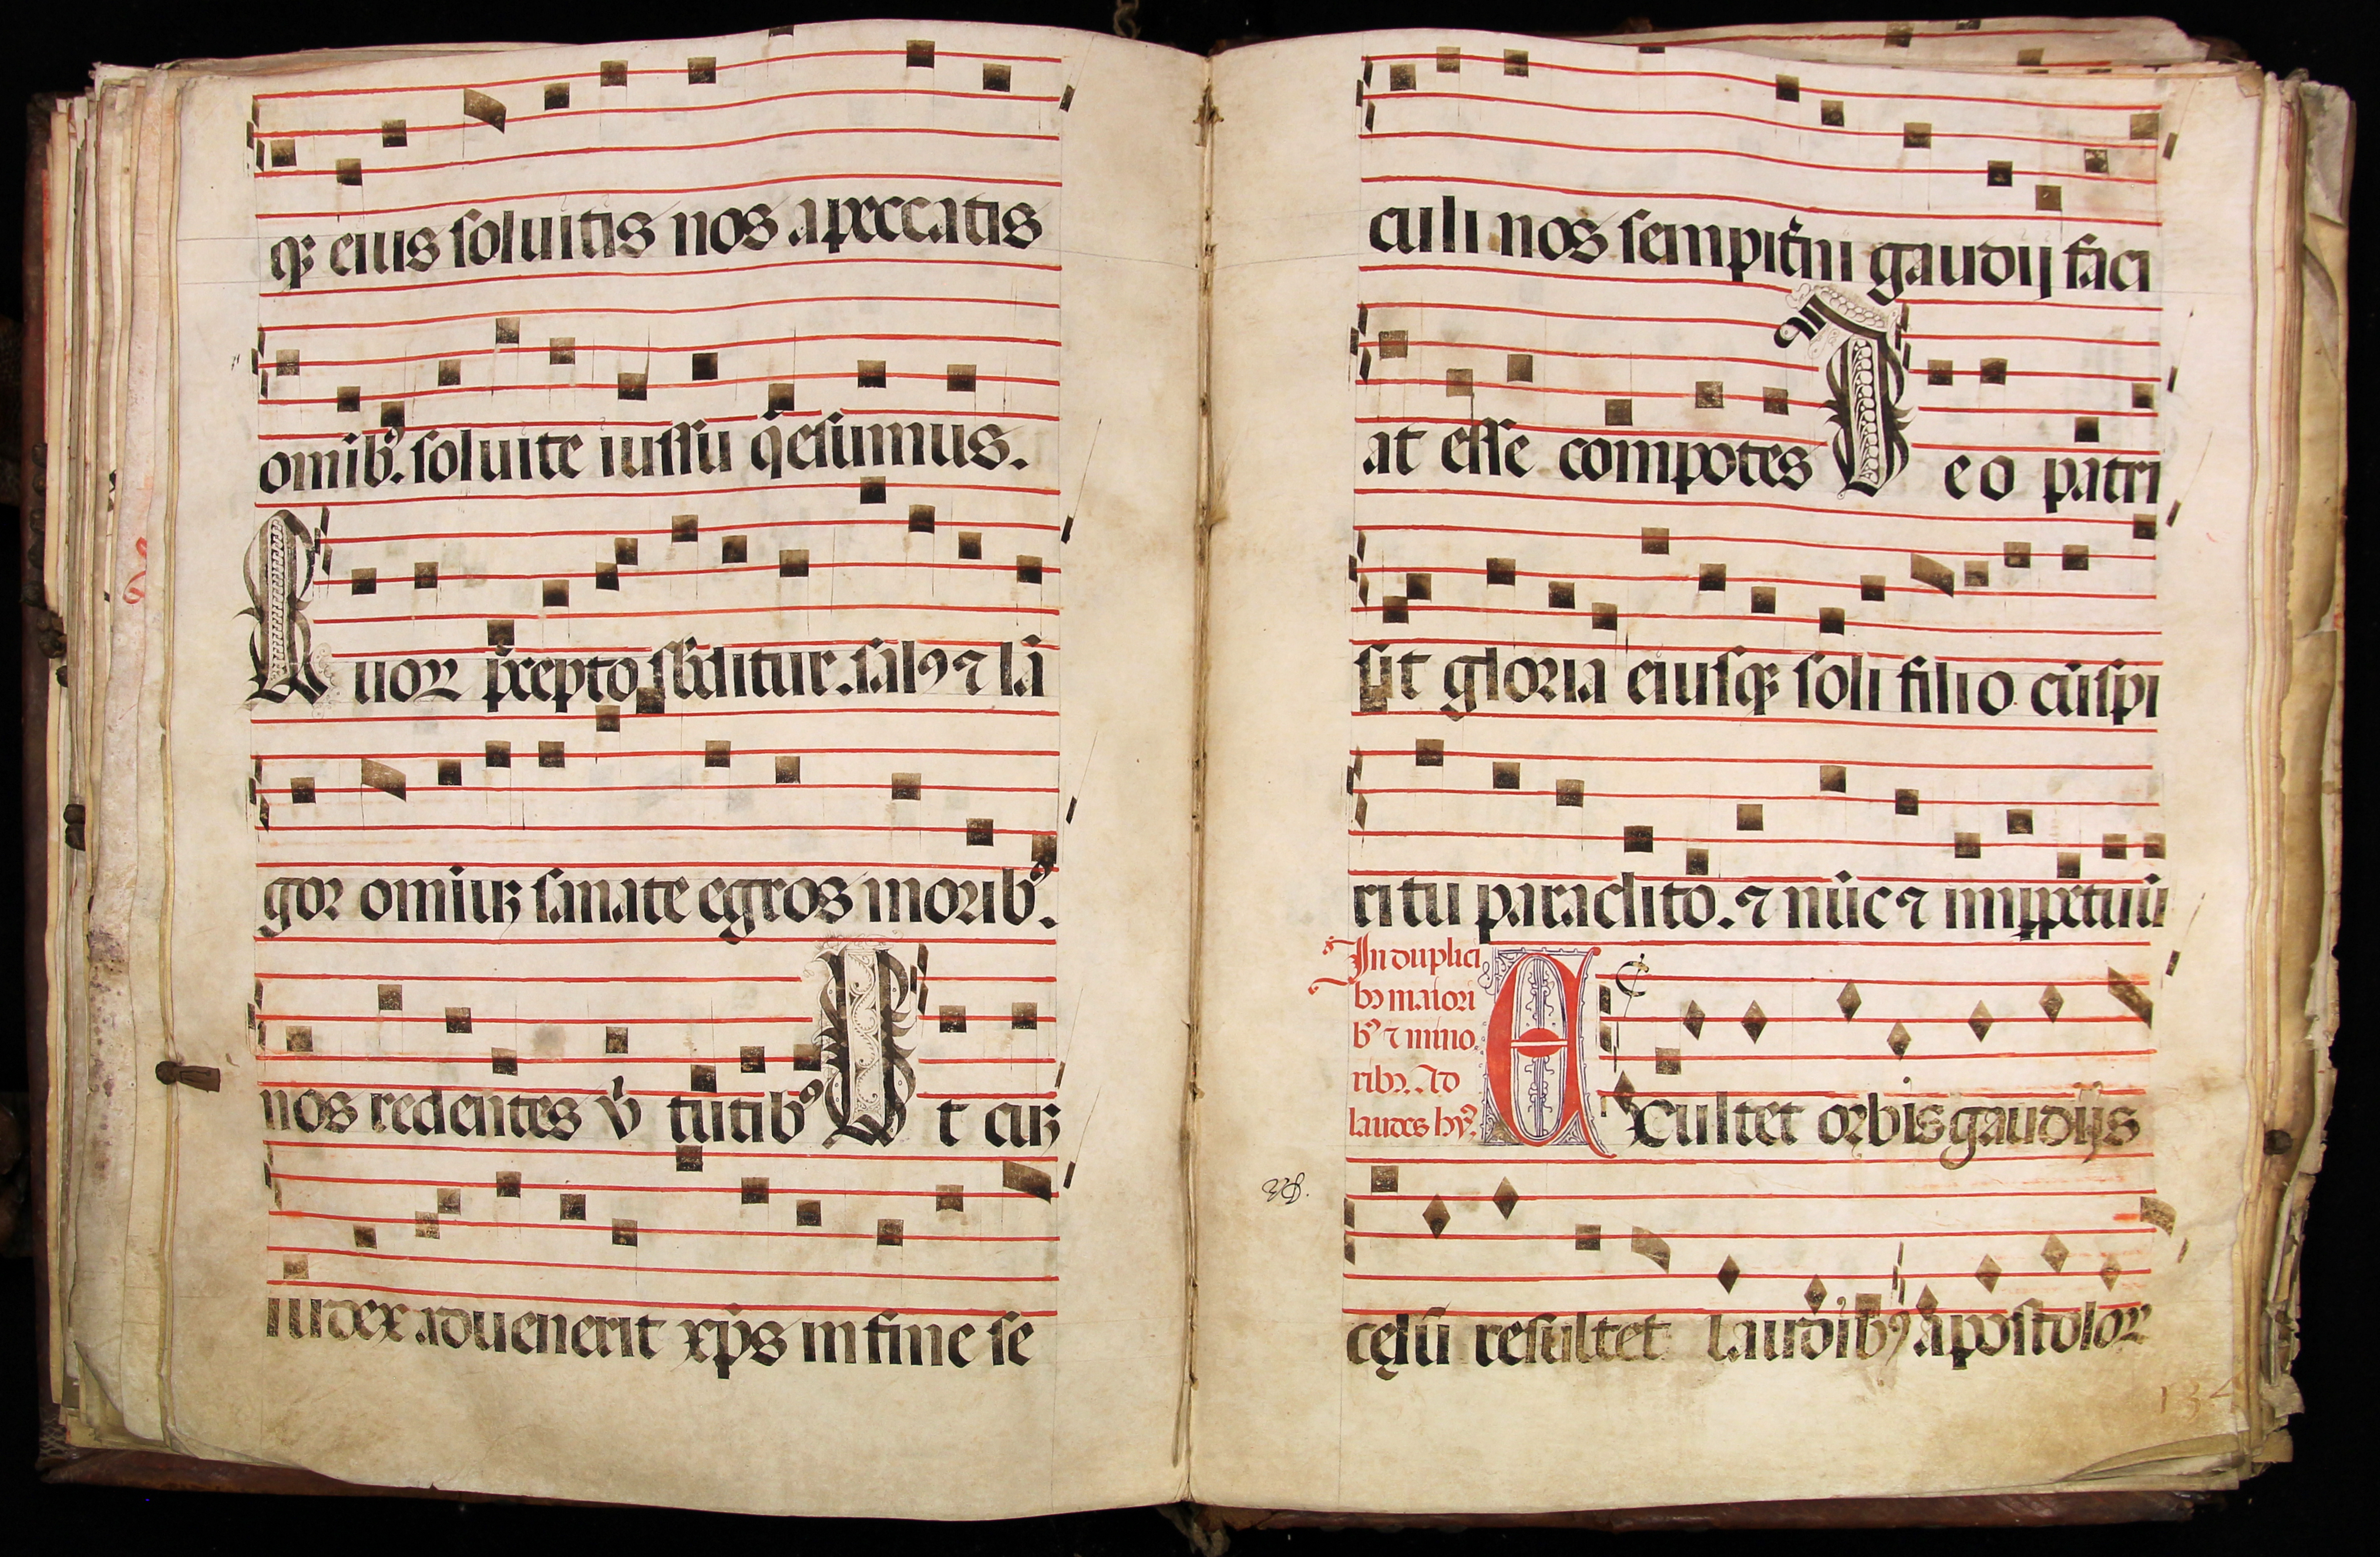 qꝫ eius soluitis nos apeccatis
omībꝰ. soluite iussu q̄esumus.
Quoꝝ p̄cepto sbditur. salꝰ ⁊ lā
gor omiuꝫ sanate egros moribꝰ.
nos redentes v̓tutibꝰ Ut cuꝫ
iudex aduenerit xp̄s in fine se
culi nos sempit̓ni gaudij faci
at esse compotes Deo patri
sit gloria eiusqꝫ soli filio cūspi
ritu paraclito. ⁊ nūc ⁊ imꝑpetuū
In duplici
bꝰ maiori
bꝰ ⁊ mino
ribꝰ. Ad
laudes hyꝰ.
Exultet orbis gaudijs
cęlū resultet laudibꝰ apostoloꝝ
134